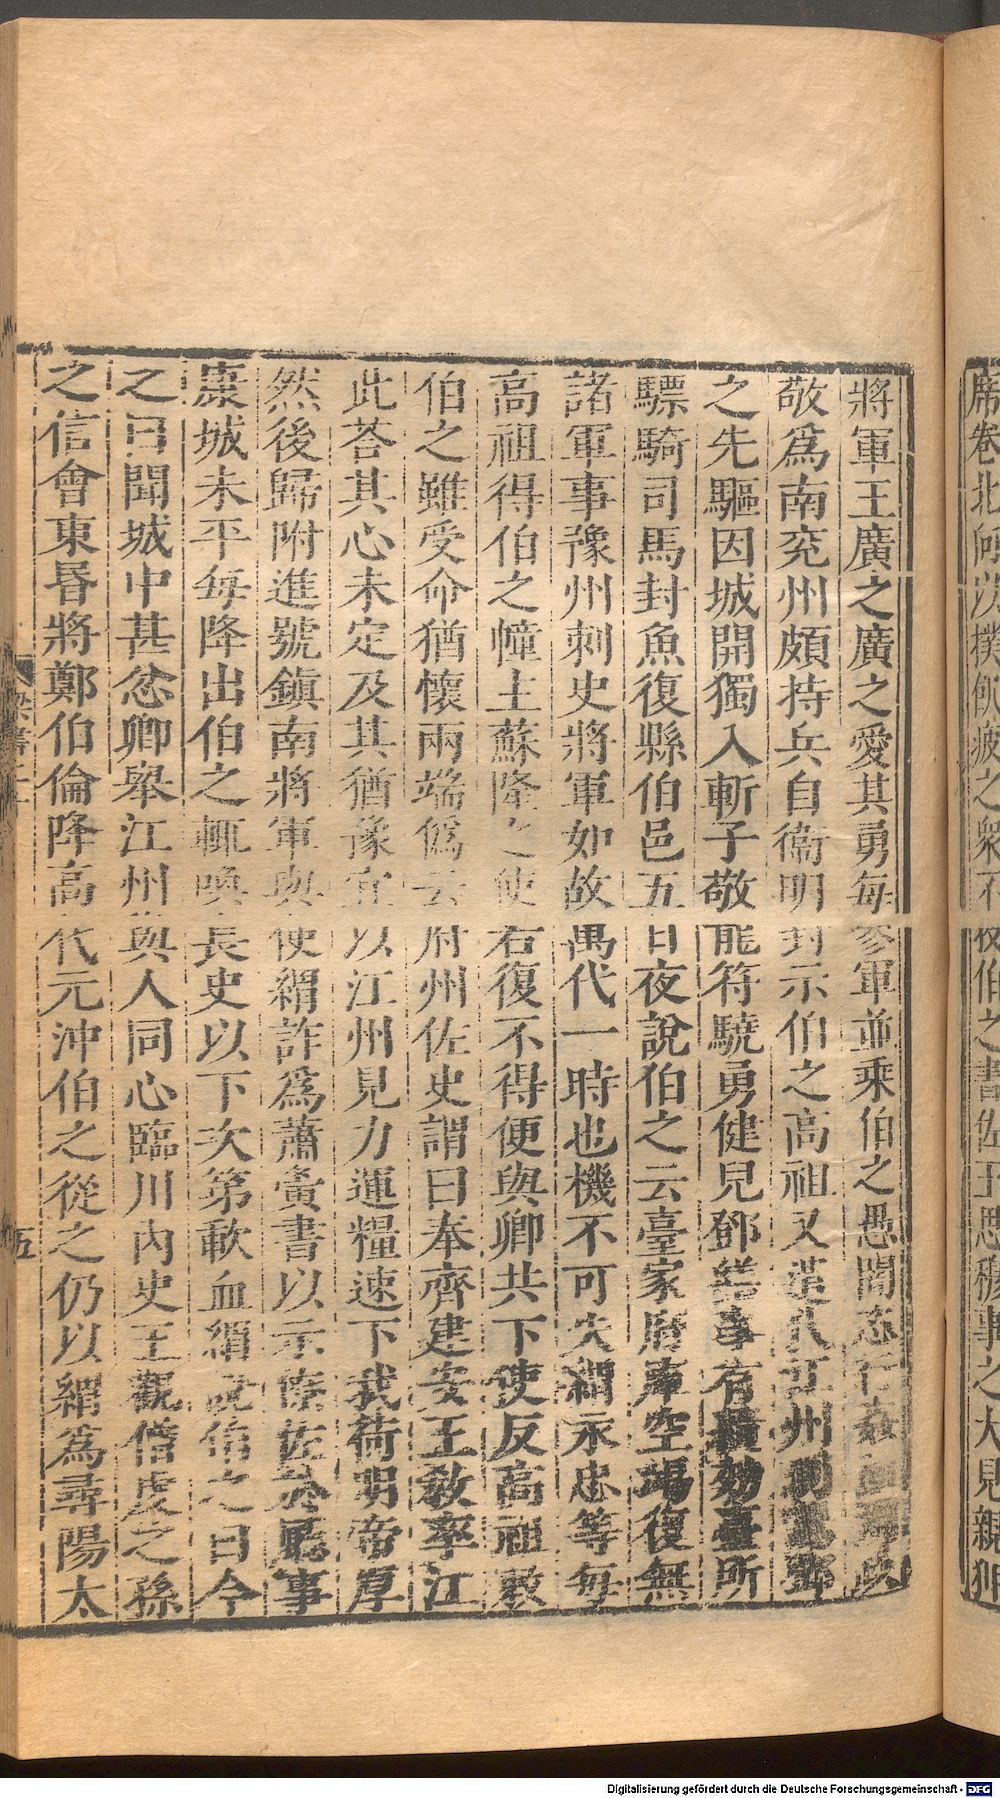 席卷北向以撲飢疲之衆不夜伯之書佐王思穆事之大見親狎
將軍王廣之廣之愛其勇每參軍並乘伯之愚闇恣行姦
敬爲南兖州頗持兵自衞明封示伯之高祖又遣代江州別駕鄧
之先驅因城開獨入斬子敬能符驍勇健兒鄧繕事有績効臺所
驃騎司馬封魚復縣伯邑五日夜說伯之云臺家府庫空竭復無
諸軍事豫州刺史將軍如故萬代一時也機不可失緭永忠等每
高祖得伯之幢主蘇隆之使若復不得便與卿共下使反高祖敕
伯之雖受命猶懷兩端僞云府州佐史謂曰奉齊建安王教率江
此荅其心未定及其猶豫宜以江州見力運糧速下我荷明帝厚
然後歸附進號鎭南將軍與使緭詐爲蕭夤書以示僚佐於廳事
康城未平每降出伯之輒喚長史以下次第歃血緭說伯之曰今
之曰聞城中甚忿卿舉江州與人同心臨川內史王觀僧虔之孫
之信會東昬將鄭伯倫降高代元沖伯之從之仍以緭爲尋陽太
梁書二十 五
Digitalisierung gefördert durch die Deutsche Forschungsgemeinschaft - DFG